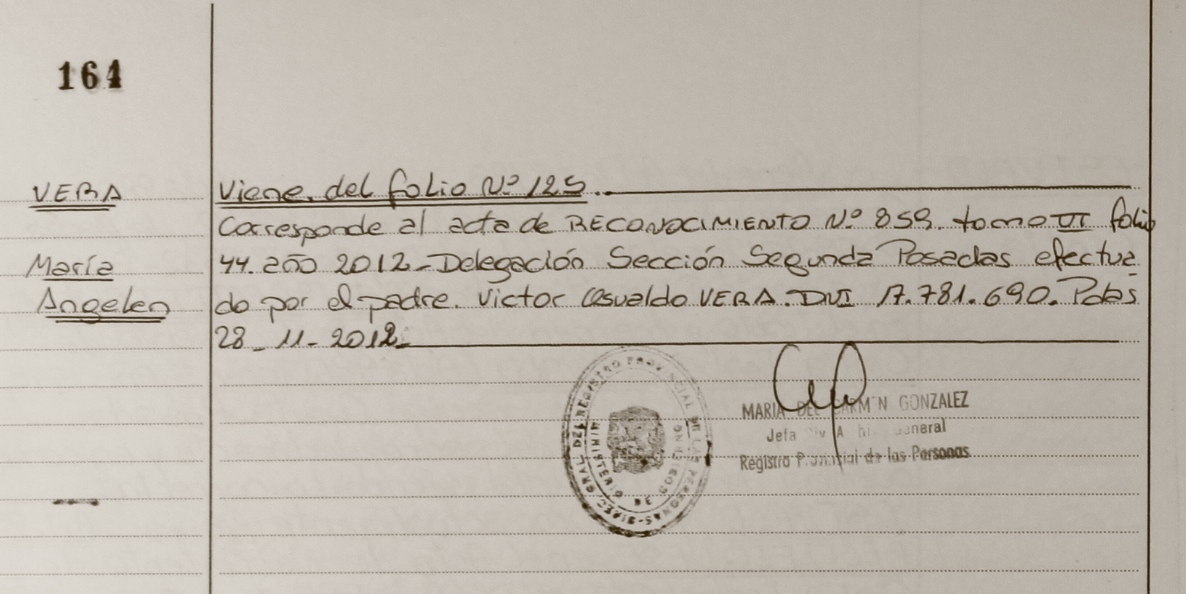 164
VERA
María
Angeles
Viene del folio Nº 125
Corresponde al acta de RECONOCIMIENTO Nº 859 tomo VI folio
44. año 2012 - Delegación Sección Segunda Posadas efectua
do por el padre. Victor Osvaldo VERA. DNI 17.781.690. Pdas
28 - 11 - 2012
MARIA DEL CARMEN GONZALEZ
Jefa General
Registro Provincial de las Personas
DIREC. GRAL. DEL REGISTRO PROVINCIAL DE LAS PERSONAS
MINISTERIO DE GOBIERNO